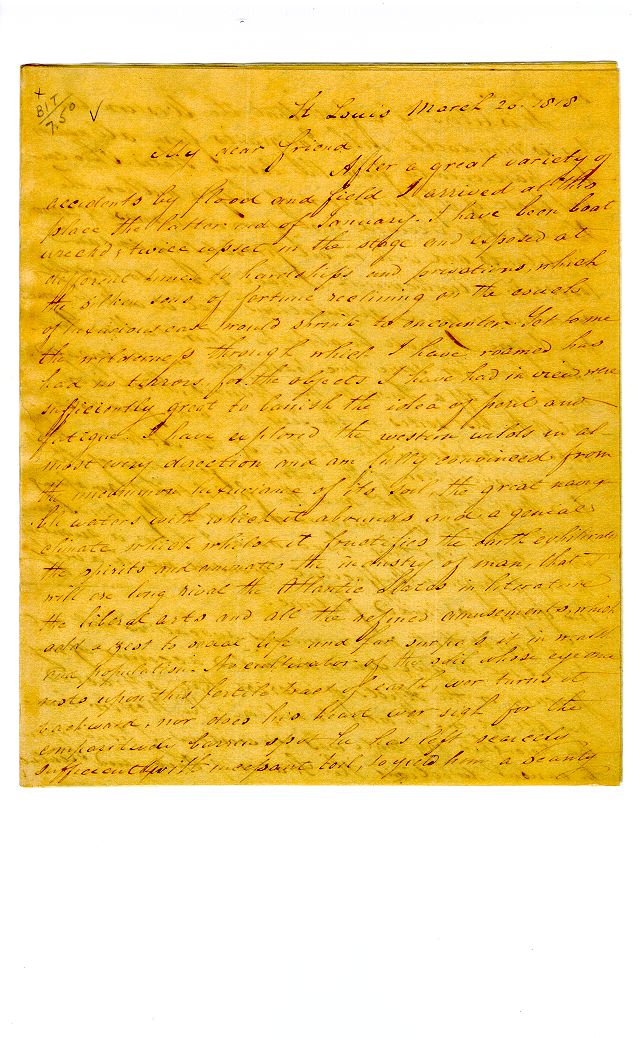 +
BIT
7.50
✓
St Louis March 20. 1818
My dear friend
After a great variety of
accidents by flood and field I arrived at this
place the latter end of January. I have been boat
wreckd, twice upset in the stage and exposed at
different times to hardships and privations, which
the silken sons of fortune reclining on the couch
of luxurious ease would shrink to encounter. Yet to me
the wilderness through which I have roamed has
had no terrors, for the objects I have had in view were
sufficiently great to banish the idea of peril and
fatigue. I have explored the western wilds in al
most every direction and am fully convinced from
the uncommon luxuriance of its soil the great navig
ble waters with which it abounds and a genial
climate which whilst it fructifies the earth exhilerates
the spirits and animates the industry of man, that it
will ere long rival the Atlantic States in literature
the liberal arts and all the refined amusements, which
add a zest to social life and far surpass it in wealth
and population. No cultivator of the soil whose eye once
rests upon this fertile tract of earth ever turns it
backward, nor does his heart ever sigh for the
comparitively barren spot he has left scarcely
sufficient with incessant toil, to yield him a scanty